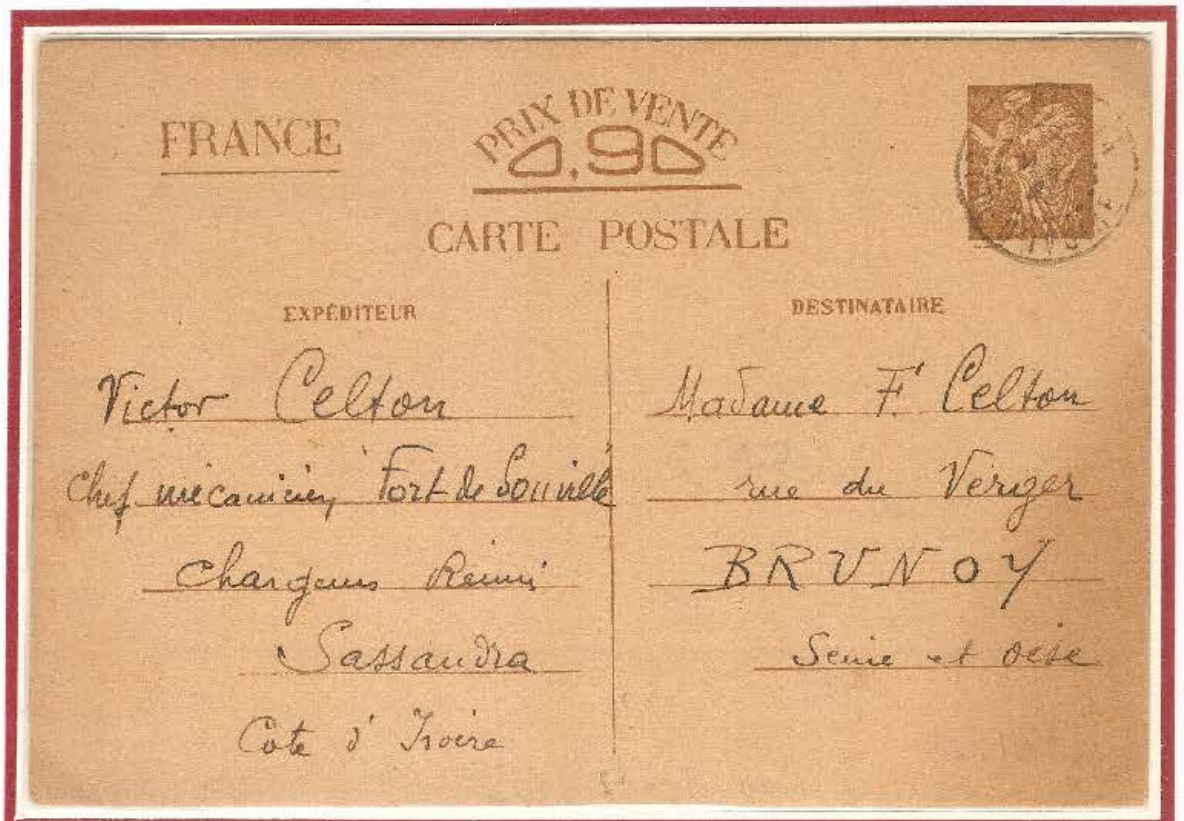 FRANCE
PRIX DE VENTE
0,90
CARTE POSTALE
EXPÉDITEUR
Victor Celton
Chef mécanicien, Fort de Souville
Chargeurs Réunis
Sassandra
Cote d'Ivoire
DESTINATAIRE
Madame F. Celton
rue du Verger
BRUNOY
Seine et Oise